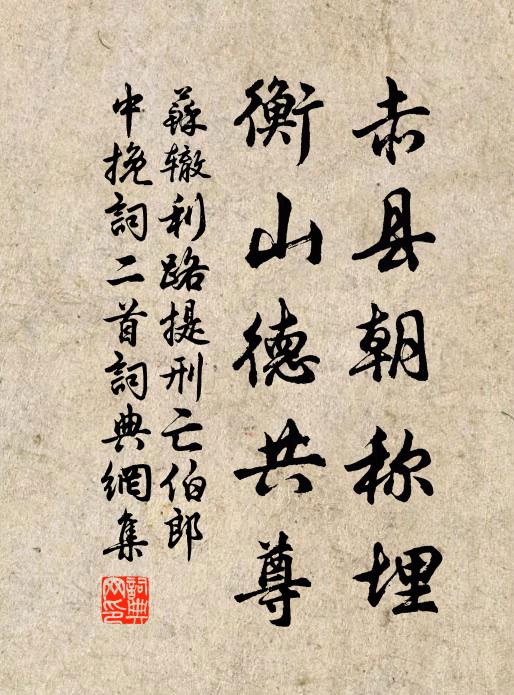 赤县朝称埋
衡山德共尊
蘇辙利路提刑亡伯郎
中挽詞二首詞典網集
詞典网印